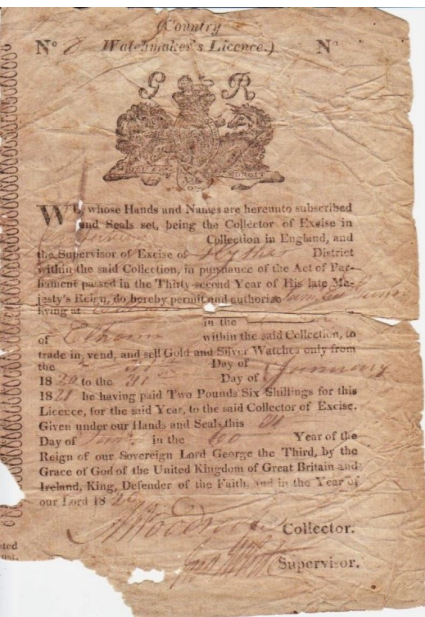 (Country
Nº 8 Watchmaker's Licence.) Nº
G R
WE, whose Hands and Names are hereunto subscribed
and Seals set, being the Collector of Excise in
Collection in England, and
the Supervisor of Excise of Hythe District
within the said Collection, in pursuance of the Act of Par-
liament passed in the Thirty-second Year of His late Ma-
jesty's Reign, do hereby permit and authorise
living at
in the
of Elham within the said Collection, to
trade in, vend, and sell Gold and Silver Watches only from
the Day of
1820 to the Day of January
1821 he having paid Two Pounds Six Shillings for this
Licence, for the said Year, to the said Collector of Excise.
Given under our Hands and Seals this
Day of in the 60 Year of the
Reign of our Sovereign Lord George the Third, by the
Grace of God of the United Kingdom of Great Britain and
Ireland, King, Defender of the Faith, and in the Year of
our Lord 18
Collector.
Supervisor.